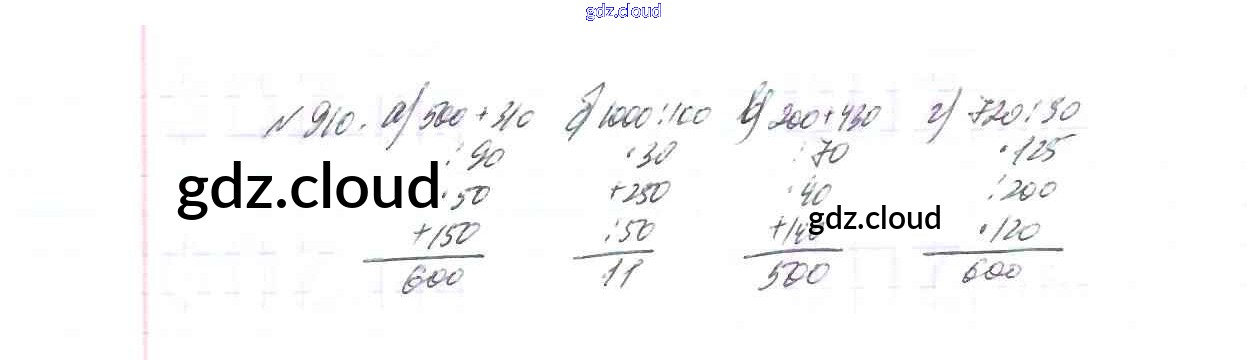 gdz.cloud
№ 910. а) 500+310 б) 1000:100 в) 200+430 г) 720:90
:90 ·30 :70 ·125
gdz.cloud
·50 +250 ·40 :200
gdz.cloud
+150 :50 +140 ·120
600 11 500 600